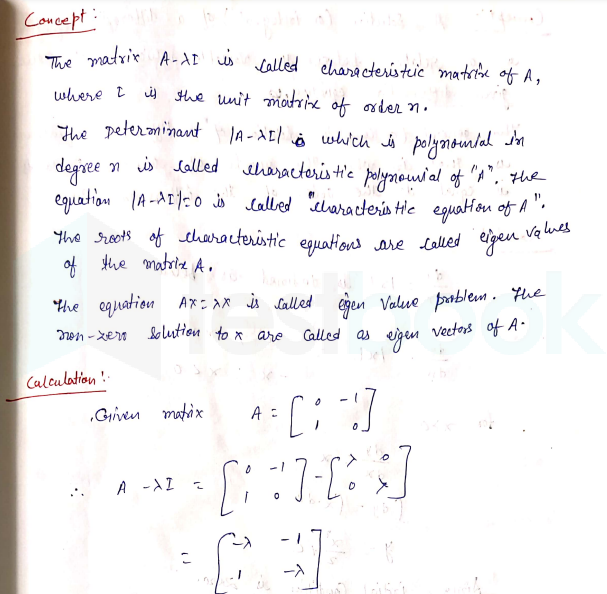 Concept :
The matrix A-λI is called characteristic matrix of A,
where I is the unit matrix of order n.
The Determinant |A-λI| is which is polynomial in
degree n is called characteristic polynomial of "A". The
equation |A-λI|=0 is called "characteristic equation of A".
The roots of characteristic equations are called eigen values
of the matrix A.
The equation AX=λX is called eigen Value problem. The
non-zero Solution to x are called as eigen vectors of A.
Calculation :-
Given matrix A = [ 0 -1
1 0 ]
∴ A -λI = [ 0 -1
1 0 ] - [ λ 0
0 λ ]
= [ -λ -1
1 -λ ]